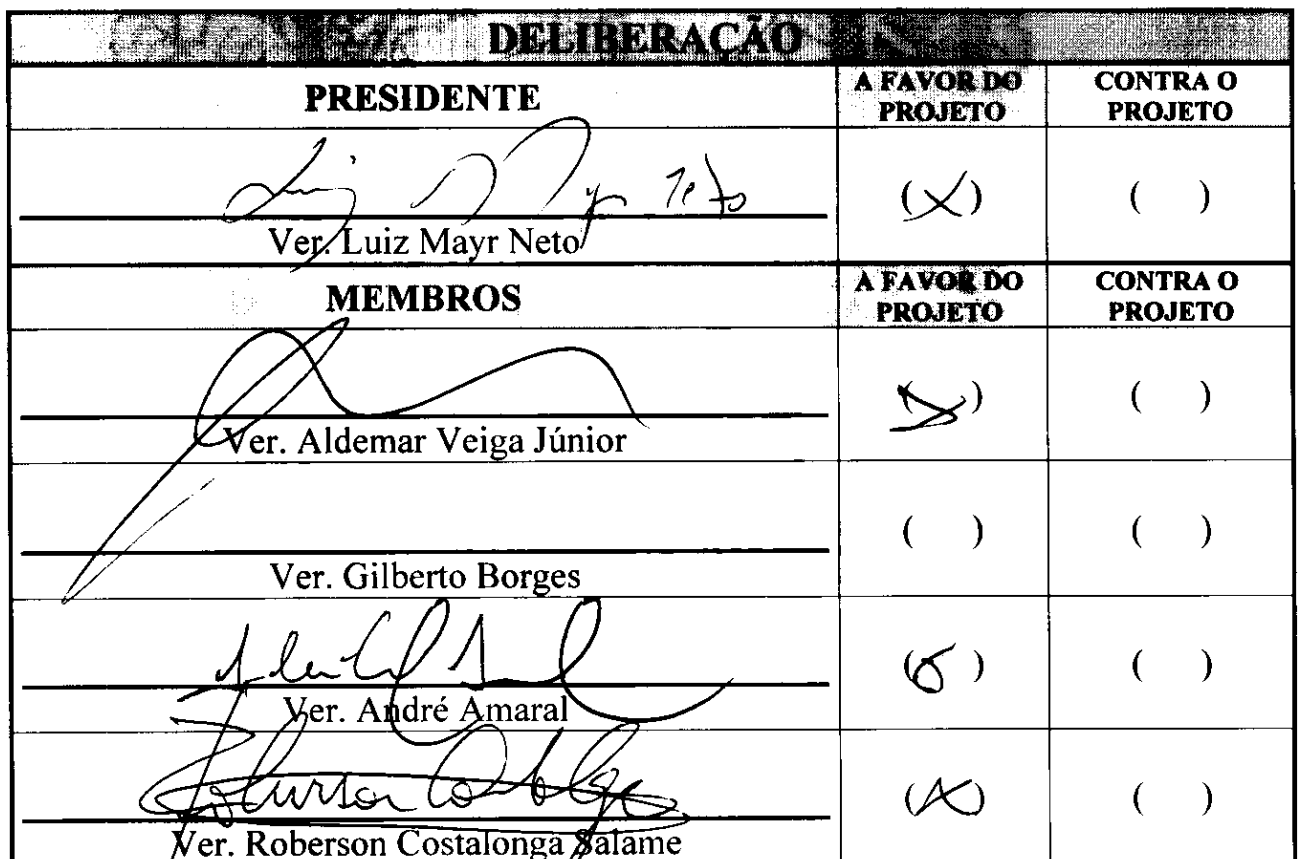 DELIBERAÇÃO
PRESIDENTE
A FAVOR DO PROJETO
CONTRA O PROJETO
Luiz Mayr Neto
(X)
( )
Ver. Luiz Mayr Neto
MEMBROS
A FAVOR DO PROJETO
CONTRA O PROJETO
(X)
( )
Ver. Aldemar Veiga Júnior
( )
( )
Ver. Gilberto Borges
( )
Ver. André Amaral
Roberson
(X)
( )
Ver. Roberson Costalonga Salame